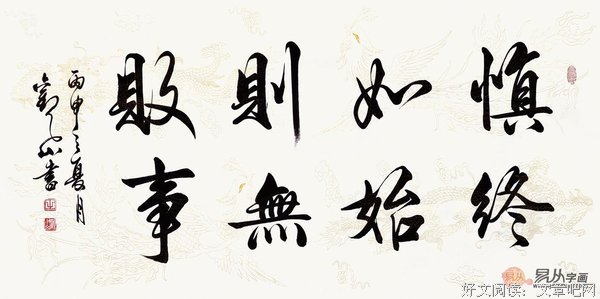 慎終
如始
則無
敗事
丙申之夏月
山書
易从 易从字画
好文阅读：文章吧网